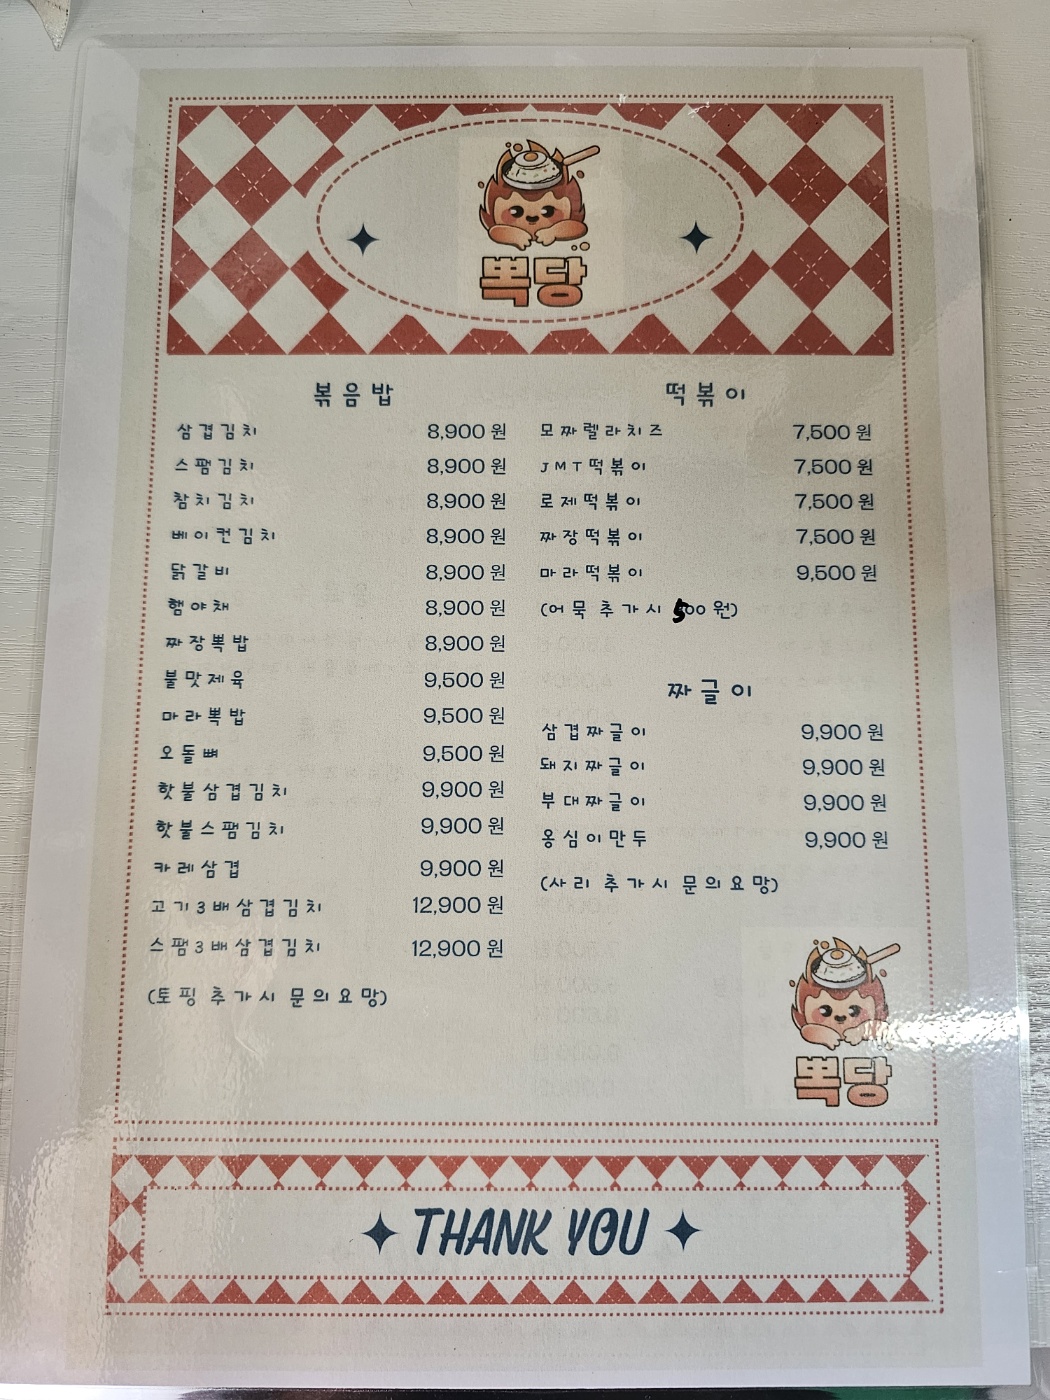 뽁당
볶음밥
삼겹김치 8,900 원
스팸김치 8,900 원
참치김치 8,900 원
베이컨김치 8,900 원
닭갈비 8,900 원
햄야채 8,900 원
짜장뽁밥 8,900 원
불맛제육 9,500 원
마라뽁밥 9,500 원
오돌뼈 9,500 원
핫불삼겹김치 9,900 원
핫불스팸김치 9,900 원
카레삼겹 9,900 원
고기3배삼겹김치 12,900 원
스팸3배삼겹김치 12,900 원
(토핑 추가시 문의요망)
떡볶이
모짜렐라치즈 7,500 원
JMT떡볶이 7,500 원
로제떡볶이 7,500 원
짜장떡볶이 7,500 원
마라떡볶이 9,500 원
(어묵 추가시 500원)
짜글이
삼겹짜글이 9,900 원
돼지짜글이 9,900 원
부대짜글이 9,900 원
옹심이만두 9,900 원
(사리 추가시 문의요망)
뽁당
THANK YOU